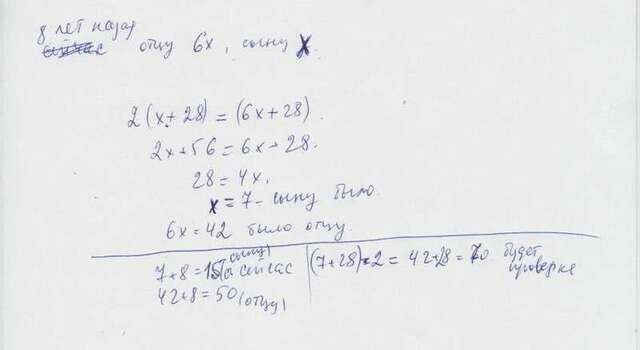 8 лет назад
сейчас отцу 6x, сыну x.
2(x+28)=(6x+28).
2x+56=6x+28.
28=4x.
x=7- сыну было.
6x=42 было отцу.
7+8=15(сыну) сейчас
42+8=50(отцу)
(7+28)·2=42+28=70. будет
проверке